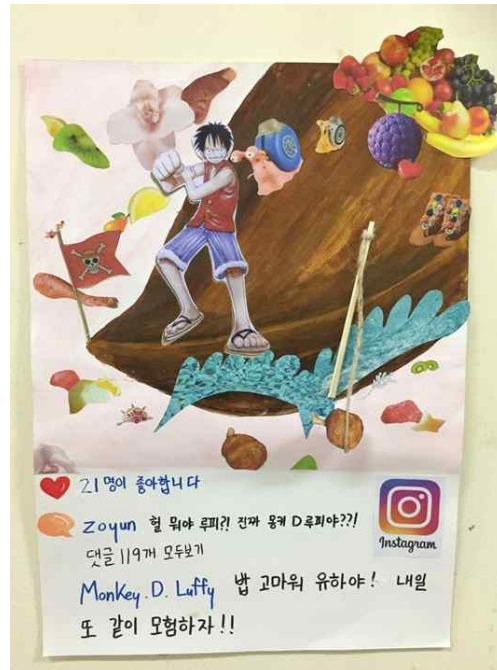 21명이 좋아합니다
zoyun 헐 뭐야 루피?! 진짜 몽키 D루피야??!
댓글 119개 모두보기
Instagram
Monkey.D.Luffy 밥 고마워 유하야! 내일
또 같이 모험하자!!